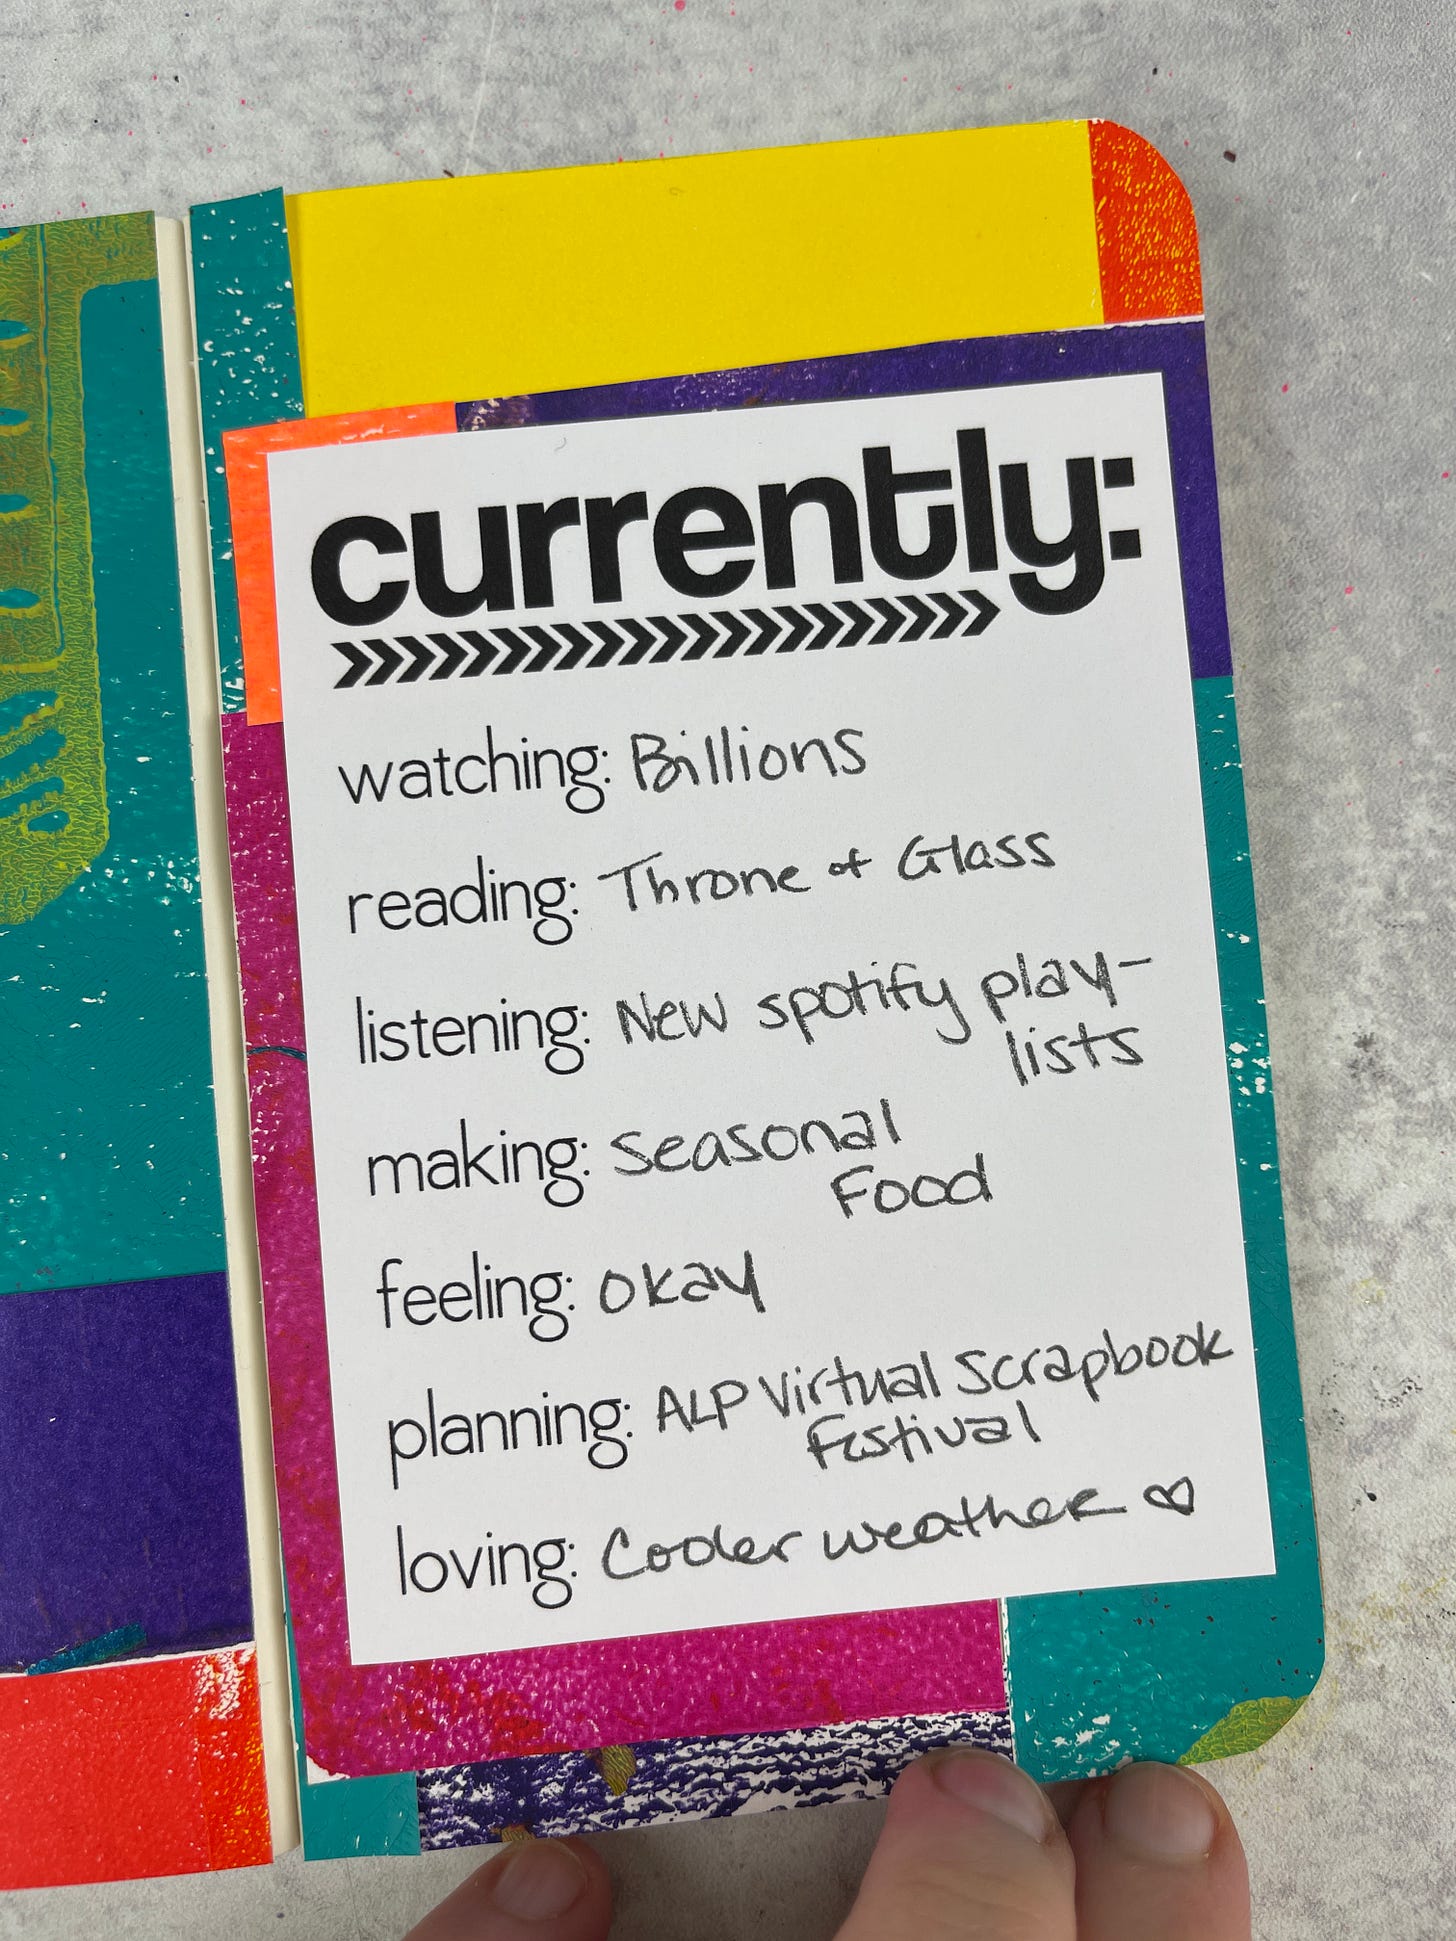 currently:
watching: Billions
reading: Throne of Glass
listening: New spotify play-
lists
making: Seasonal
Food
feeling: okay
planning: ALP Virtual Scrapbook
Festival
loving: Cooler weather ♡